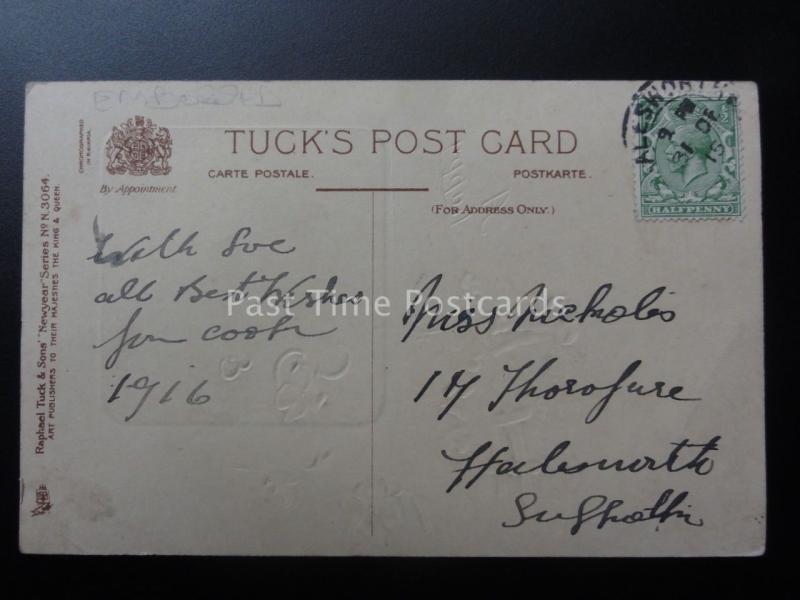 EMBOSSED
TUCK'S POST CARD
CARTE POSTALE. POSTKARTE.
(FOR ADDRESS ONLY.)
By Appointment
CHROMOGRAPHED
IN BAVARIA.
Raphael Tuck & Sons' "Newyear" Series Nº N. 3064.
ART PUBLISHERS TO THEIR MAJESTIES THE KING & QUEEN.
HALFPENNY
ALESWORTH
9 PM
31 DE
15
With
all Best Wishes
from
1916
Miss Nickolis
17 Thorofure
Halesworth
Suffolk
Past Time Postcards